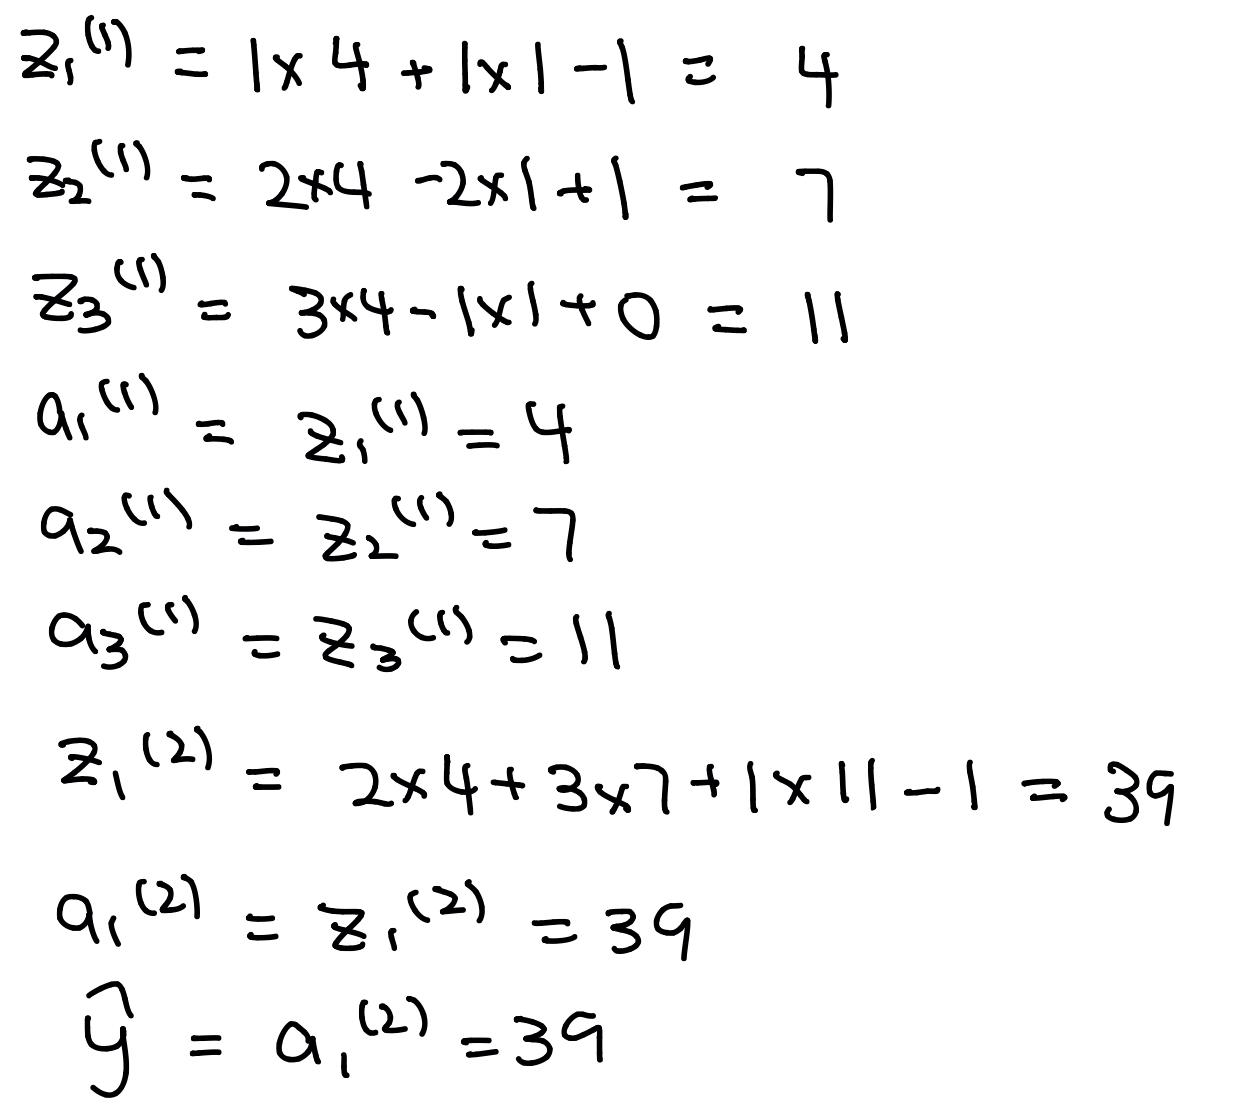 z₁⁽¹⁾ = 1×4 + 1×1 − 1 = 4
z₂⁽¹⁾ = 2×4 − 2×1 + 1 = 7
z₃⁽¹⁾ = 3×4 − 1×1 + 0 = 11
a₁⁽¹⁾ = z₁⁽¹⁾ = 4
a₂⁽¹⁾ = z₂⁽¹⁾ = 7
a₃⁽¹⁾ = z₃⁽¹⁾ = 11
z₁⁽²⁾ = 2×4 + 3×7 + 1×11 − 1 = 39
a₁⁽²⁾ = z₁⁽²⁾ = 39
ŷ = a₁⁽²⁾ = 39